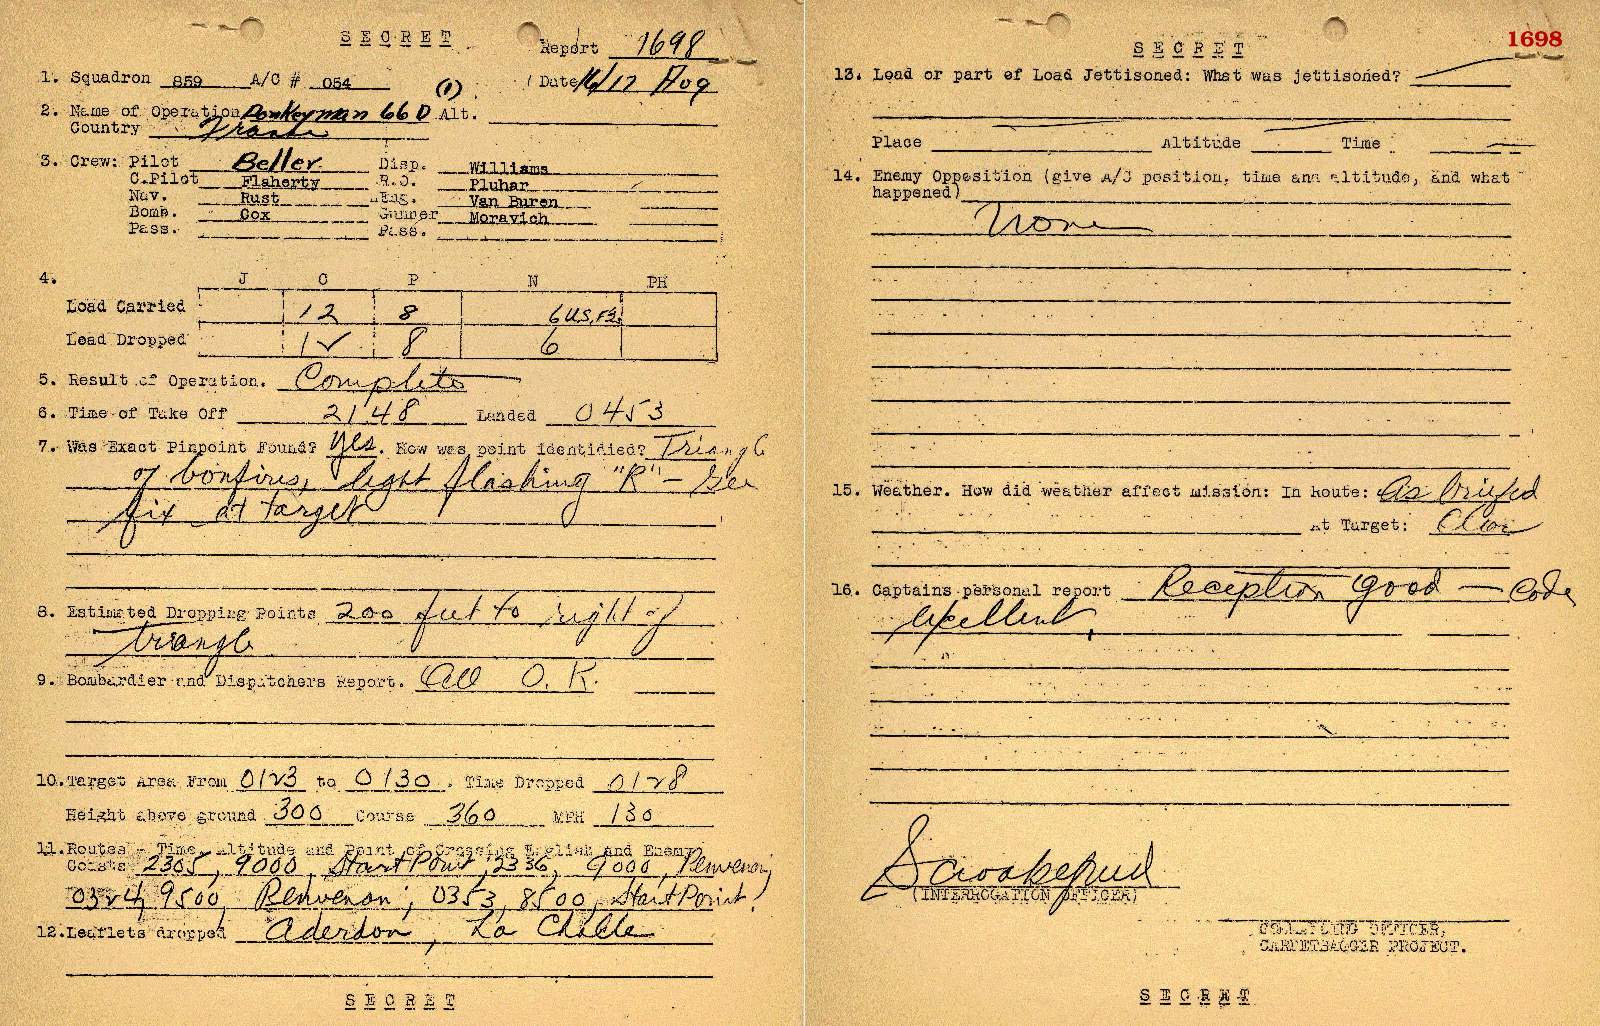 SECRET
Report 1698
1. Squadron 859 A/C # 054 (1) Date 16/17 Aug
2. Name of Operation Donkeyman 66 D Alt.
Country France
3. Crew: Pilot Beller Disp. Williams
C.Pilot Flaherty R.O. Pluhar
Nav. Rust Eng. Van Buren
Bomb. Cox Gunner Moravich
Pass. Pass.
4. J C P N PH
Load Carried 12 8 6 U.S.,
Load Dropped 12 8 6
5. Result of Operation. Complete
6. Time of Take Off 2148 Landed 0453
7. Was Exact Pinpoint Found? yes. How was point identidied? Triangle
of bonfires, light flashing "R" - Gee
fix at target
8. Estimated Dropping Points 200 feet to right of
triangle
9. Bombardier and Dispatchers Report. All O.K.
10. Target Area From 0123 to 0130. Time Dropped 0128
Height above ground 300 Course 360 MPH 130
11. Routes - Time, Altitude and Point of Crossing English and Enemy
Coasts 2305, 9000, Start Point; 2336, 9000,
0324, 9500, 0353, 8500, Start Point.
12. Leaflets dropped
SECRET
SECRET
1698
13. Load or part of Load Jettisoned: What was jettisoned?
Place Altitude Time
14. Enemy Opposition (give A/C position, time and altitude, and what
happened)
None
15. Weather. How did weather affect mission: In Route: As briefed
At Target: Clear
16. Captains personal report Reception good - Code
excellent.
(INTERROGATION OFFICER)
COMMANDING OFFICER,
CARPETBAGGER PROJECT.
SECRET